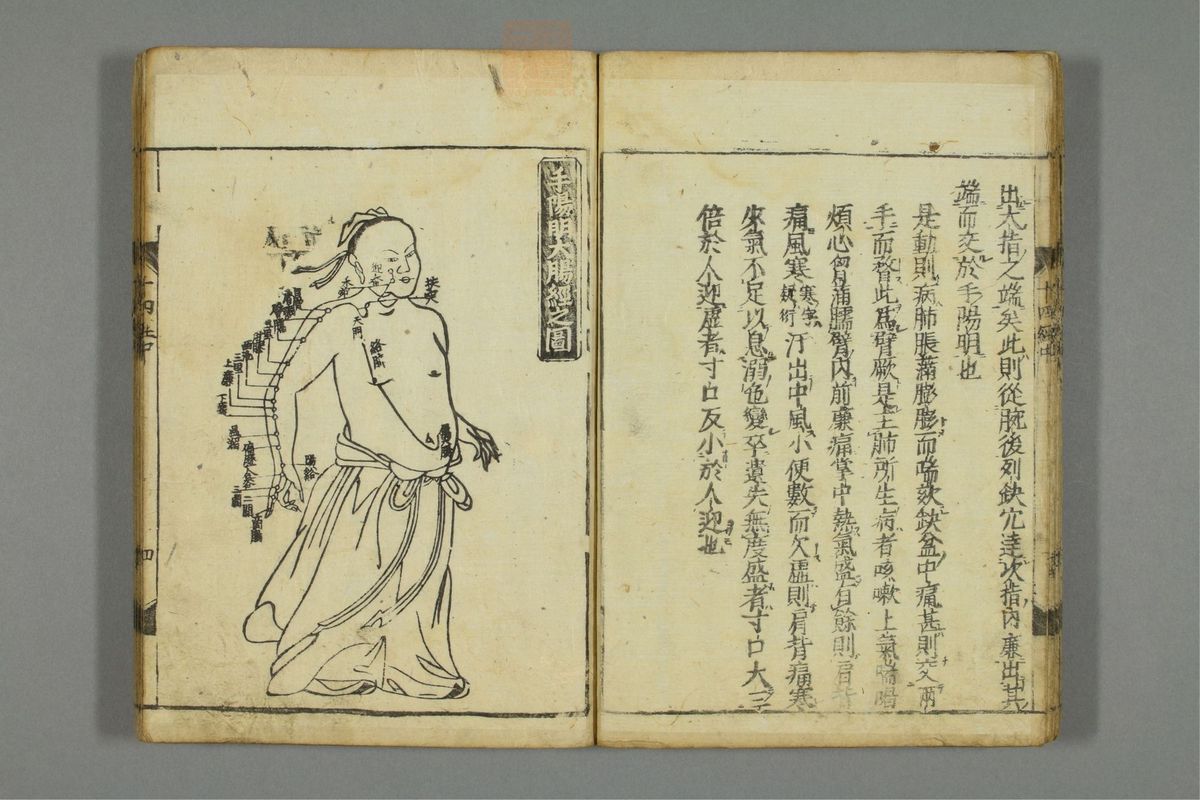 出大指之端矣此則從腕後列缺穴達次指內廉出其
端而交於手陽明也
是動則病肺脹滿膨膨而喘欬缺盆中痛甚則交兩
手而瞀此爲臂厥是主肺所生病者咳嗽上氣喘喝
煩心胷滿臑臂內前廉痛掌中熱氣盛有餘則肩背
痛風寒寒字疑衍汗出中風小便數而欠虛則肩背痛寒
少氣不足以息溺色變卒遺失無度盛者寸口大三
倍於人迎虛者寸口反小於人迎也
手陽明大腸經之圖
扶突
迎香
禾窌
天鼎
三里
上廉
下廉
溫溜
偏歷
合谷
三間
二間
商陽
陽谿
四